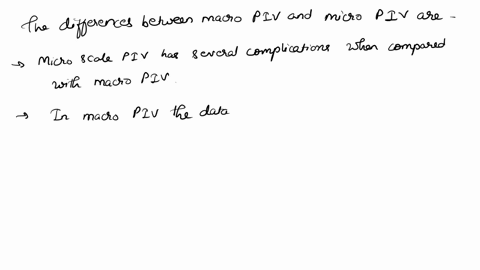 The differences between macro PIV and micro PIV are -
→ Micro scale PIV has several complications when compared
with macro PIV.
→ In macro PIV the data